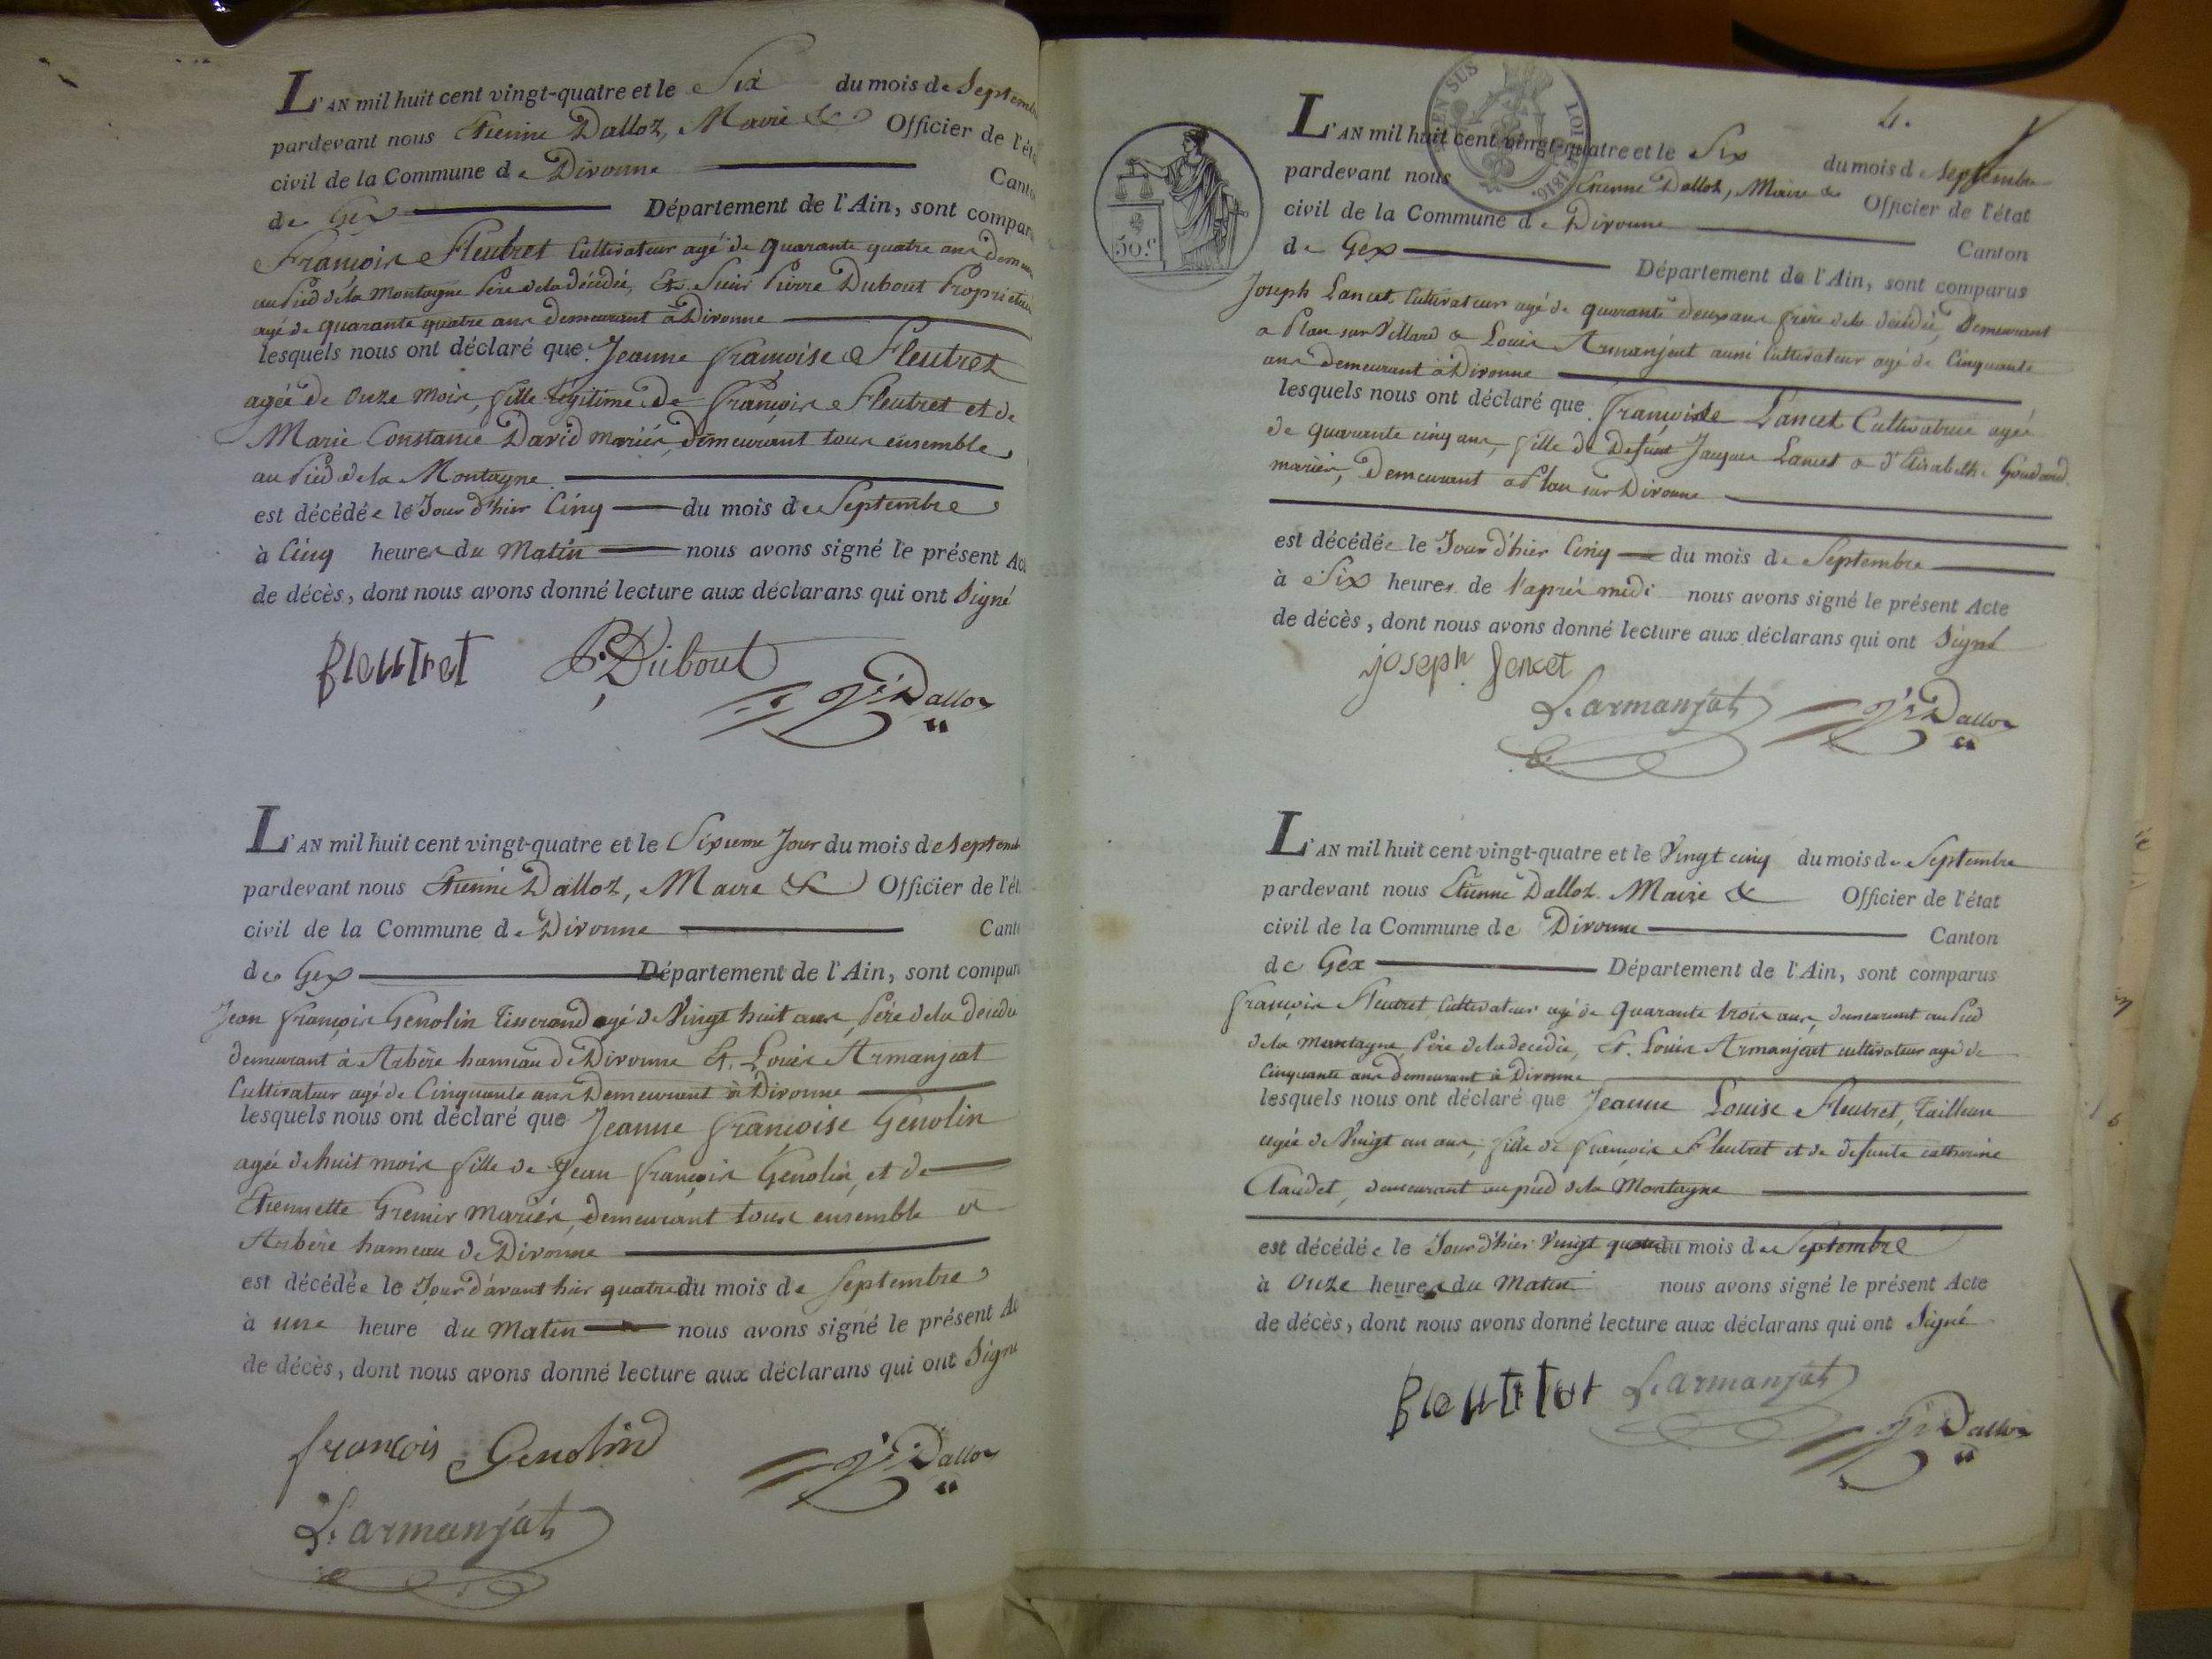 L'AN mil huit cent vingt-quatre et le Six du mois de Septemb
pardevant nous Etienne Dalloz, Maire & Officier de l'éta
civil de la Commune de Divonne Canto
de Gex Département de l'Ain, sont compar
François Fleutret Cultivateur agé de quarante quatre ans
au Pied de la Montagne Père de la décédée, Et Sieur Pierre Dubout Propriétai
agé de quarante quatre ans demeurant à Divonne
lesquels nous ont déclaré que Jeanne françoise Fleutret
agée de Onze Mois, fille légitime de françois Fleutret et de
Marie Constance David mariés, demeurant tous ensemble
au Pied de la Montagne
est décédée le Jour d'hier Cinq du mois de Septembre
à Cinq heures du Matin nous avons signé le présent Act
de décès, dont nous avons donné lecture aux déclarans qui ont Signé
fleutret P. Dubout
Dalloz
L'AN mil huit cent vingt-quatre et le Sixieme Jour du mois de Septemb
pardevant nous Etienne Dalloz, Maire & Officier de l'ét
civil de la Commune de Divonne Cant
de Gex Département de l'Ain, sont compar
Jean françois Genolin Tisserand agé de Vingt huit ans, Père de la décédé
demeurant à Arbère hameau de Divonne Et Louis Armanjeat
Cultivateur agé de Cinquante ans Demeurant à Divonne
lesquels nous ont déclaré que Jeanne françoise Genolin
agée de huit mois fille de Jean françois Genolin, et de
Etiennette Grenier Mariés, demeurant tous ensemble a
Arbère hameau de Divonne
est décédée le Jour d'avant hier quatre du mois de Septembre
à une heure du Matin nous avons signé le présent Ac
de décès, dont nous avons donné lecture aux déclarans qui ont Signé
françois Genolin
Dalloz
L. armanjat
4.
EN SUS LOI 1816.
50 c.
L'AN mil huit cent vingt-quatre et le Six du mois de Septembre
pardevant nous Etienne Dalloz, Maire & Officier de l'état
civil de la Commune de Divonne Canton
de Gex Département de l'Ain, sont comparus
Joseph Lancet Cultivateur agé de quarante deux ans frère de la décédée, Demeurant
a Plan sur Villard & Louis Armanjeat aussi Cultivateur agé de Cinquante
ans demeurant à Divonne
lesquels nous ont déclaré que françoise Lancet Cultivatrice agée
de quarante cinq ans, fille de Defunt Jacques Lancet & d'Elisabeth
mariés, Demeurant a Plan sur Divonne
est décédée le Jour d'hier Cinq du mois de Septembre
à Six heures de l'après midi nous avons signé le présent Acte
de décès, dont nous avons donné lecture aux déclarans qui ont Signé
joseph Lencet
L. armanjat Dalloz
L'AN mil huit cent vingt-quatre et le Vingt cinq du mois de Septembre
pardevant nous Etienne Dalloz. Maire & Officier de l'état
civil de la Commune de Divonne Canton
de Gex Département de l'Ain, sont comparus
françois Fleutret, Cultivateur agé de quarante trois ans, demeurant au Pied
de la Montagne, Père de la decedée, Et. Louis Armanjeat cultivateur agé de
Cinquante ans demeurant à Divonne
lesquels nous ont déclaré que Jeanne Louise Fleutret, Tailleuse
agée de Vingt un ans, fille de françois Fleutret et de defunte catherine
Claudet, demeurant au pied de la Montagne
est décédée le Jour d'hier Vingt quatre du mois de Septembre
à Onze heures du Matin nous avons signé le présent Acte
de décès, dont nous avons donné lecture aux déclarans qui ont Signé
fleutret L. armanjat
Dalloz